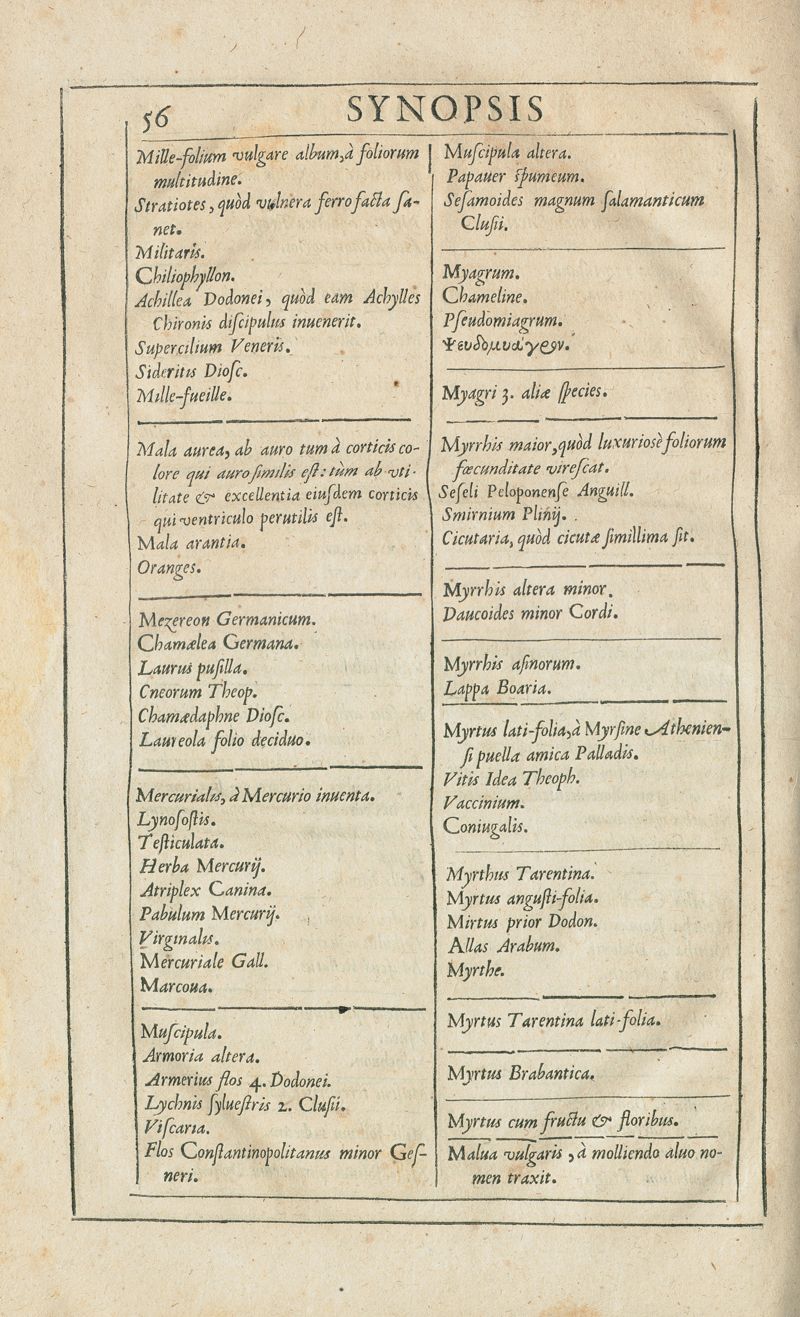 56
SYNOPSIS
Mille-folium vulgare album, à foliorum
multitudine.
Stratiotes, quòd vulnera ferro facta sa-
net.
Militaris.
Chiliophyllon.
Achillea Dodonei, quòd eam Achylles
Chironis discipulus inuenerit.
Supercilium Veneris.
Sideritis Diosc.
Mille-fueille.
Mala aurea, ab auro tum à corticis co-
lore qui auro similis est: tùm ab vti-
litate & excellentia eiusdem corticis
qui ventriculo perutilis est.
Mala arantia.
Oranges.
Mezereon Germanicum.
Chamælea Germana.
Laurus pusilla.
Cneorum Theop.
Chamædaphne Diosc.
Laureola folio deciduo.
Mercurialis, à Mercurio inuenta.
Lynosostis.
Testiculata.
Herba Mercurij.
Atriplex Canina.
Pabulum Mercurij.
Virginalis.
Mercuriale Gall.
Marcoua.
Muscipula.
Armoria altera.
Armerius flos 4. Dodonei.
Lychnis syluestris 2. Clusii.
Viscaria.
Flos Constantinopolitanus minor Ges-
neri.
Muscipula altera.
Papauer spumeum.
Sesamoides magnum salamanticum
Clusii.
Myagrum.
Chameline.
Pseudomiagrum.
Ψευδομυάγρον.
Myagri 3. aliæ species.
Myrrhis maior, quòd luxuriosè foliorum
fœcunditate virescat.
Seseli Peloponense Anguill.
Smirnium Plinij.
Cicutaria, quòd cicutæ simillima sit.
Myrrhis altera minor.
Daucoides minor Cordi.
Myrrhis asinorum.
Lappa Boaria.
Myrtus lati-folia, à Myrsine Athenien-
si puella amica Palladis.
Vitis Idea Theoph.
Vaccinium.
Coniugalis.
Myrthus Tarentina.
Myrtus angusti-folia.
Mirtus prior Dodon.
Allas Arabum.
Myrthe.
Myrtus Tarentina lati-folia.
Myrtus Brabantica.
Myrtus cum fructu & floribus.
Malua vulgaris, à molliendo aluo no-
men traxit.